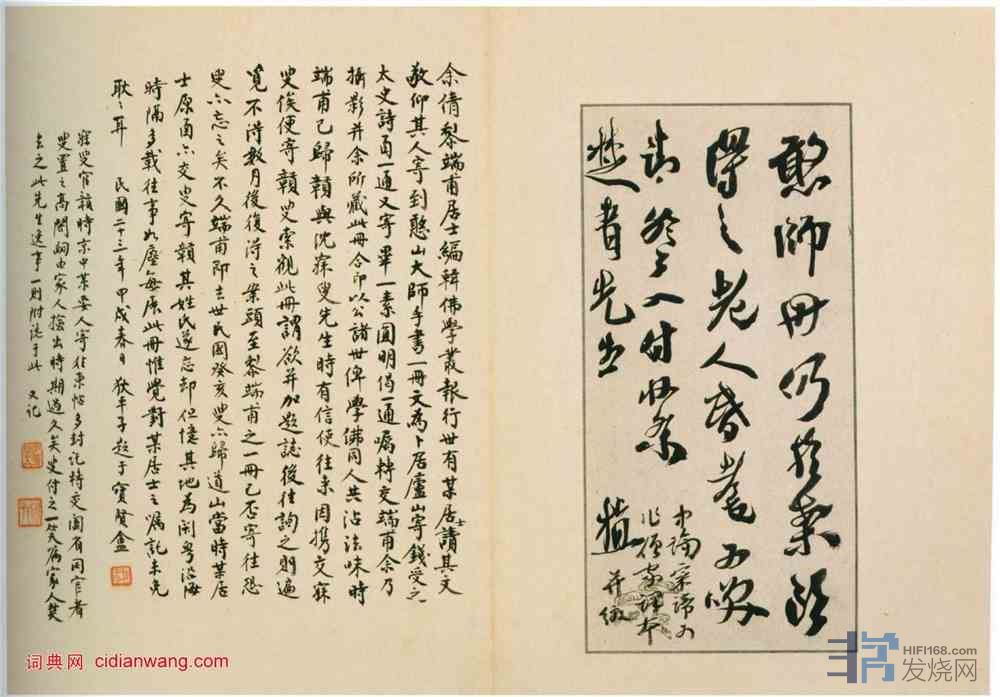 憨師冊仍於案頭
得之老人昏耄可笑
楚青先生
植
余倩黎端甫居士編輯佛學叢報行世有某居士讀其文
敬仰其人寄到憨山大師手書一冊文為卜居廬山寄錢受之
太史詩函一通又寄畢一素圓明偈一通囑轉交端甫余乃
攝影并余所藏此冊合印以公諸世俾學佛同人共沾法味時
端甫已歸贛與沈寐叟先生時有信使往來因攜交寐
叟俟便寄贛叟索觀此冊謂欲并加題誌後往詢之則遍
覓不得數月後復得之案頭至黎端甫之一冊已否寄往恐
叟亦忘之矣不久端甫即去世民國癸亥叟亦歸道山當時某居
士原函亦交叟寄贛其姓氏遂忘却但憶其地為閩粵沿海
時隔多載往事如塵每展此冊惟覺對某居士之囑託未免
耿耿耳 民國二十三年甲戌春日 狄平子題于寶賢盦
寐叟官贛時京中某要人寄往柬帖多封託轉交閣有同官者
叟置之高閣嗣由家人撿出時期過久矣叟付之一笑為家人焚
去之此先生逸事一則附誌于此 又記
词典网 cidianwang.com
HIFI168.com
发烧网